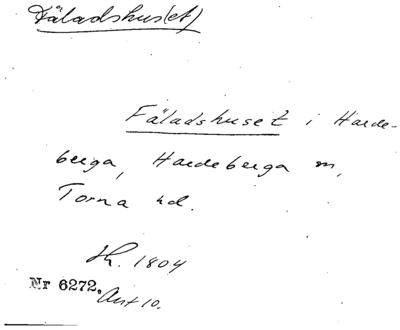 Fäladshus(et)
Fäladshuset i Harde-
berga, Hardeberga sn,
Torna hd.
Sk. 1804
Nr 6272. Ant 10.